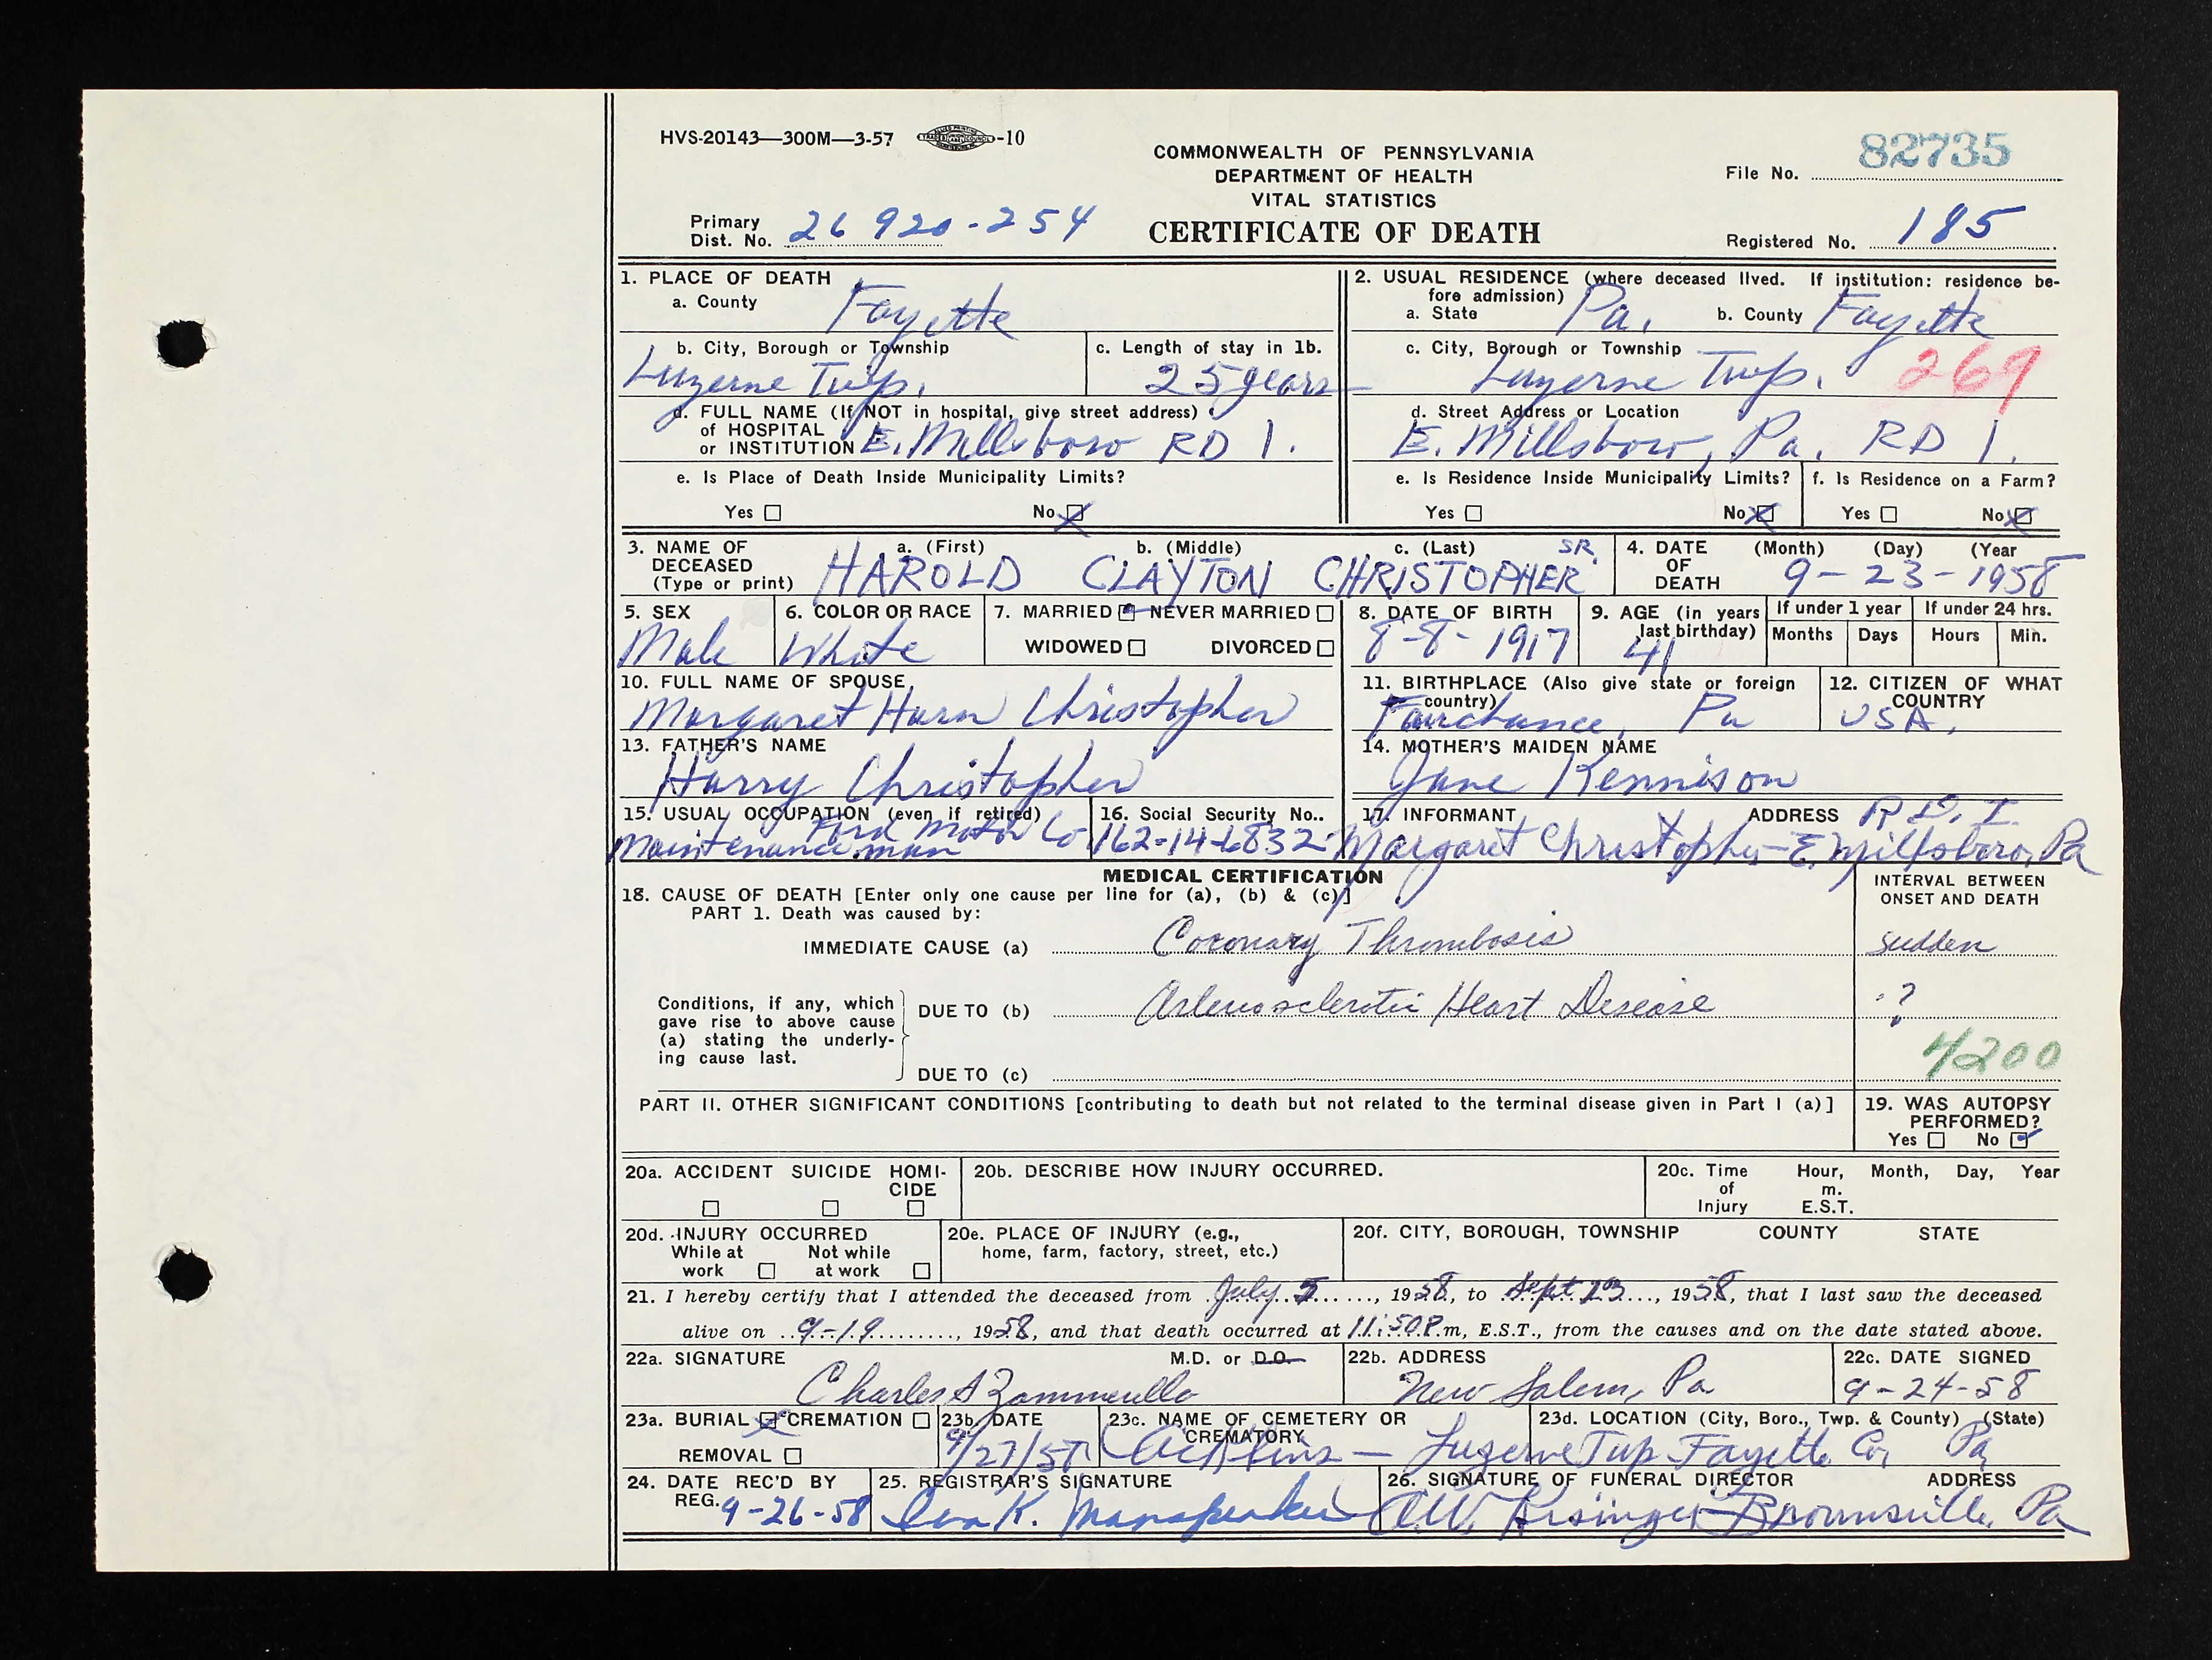 HVS-20143—300M—3-57 -10
COMMONWEALTH OF PENNSYLVANIA
DEPARTMENT OF HEALTH
VITAL STATISTICS
CERTIFICATE OF DEATH
File No. 82735
Primary Dist. No. 26 920-254
Registered No. 185
1. PLACE OF DEATH
a. County Fayette
b. City, Borough or Township
Luzerne Twp.
c. Length of stay in 1b.
25 years
d. FULL NAME (If NOT in hospital, give street address)
of HOSPITAL
or INSTITUTION E. Millsboro RD 1.
e. Is Place of Death Inside Municipality Limits?
Yes No X
2. USUAL RESIDENCE (where deceased lived. If institution: residence be-
fore admission)
a. State Pa. b. County Fayette
c. City, Borough or Township Luzerne Twp. 269
d. Street Address or Location
E. Millsboro, Pa. RD 1.
e. Is Residence Inside Municipality Limits?
Yes No X
f. Is Residence on a Farm?
Yes No X
3. NAME OF DECEASED (Type or print)
a. (First) b. (Middle) c. (Last)
HAROLD CLAYTON CHRISTOPHER SR.
4. DATE OF DEATH (Month) (Day) (Year
9-23-1958
5. SEX
Male
6. COLOR OR RACE
White
7. MARRIED NEVER MARRIED
WIDOWED DIVORCED
8. DATE OF BIRTH
8-8-1917
9. AGE (in years last birthday)
41
If under 1 year
Months Days
If under 24 hrs.
Hours Min.
10. FULL NAME OF SPOUSE
Margaret Harn Christopher
11. BIRTHPLACE (Also give state or foreign country)
Fairchance, Pa
12. CITIZEN OF WHAT COUNTRY
USA.
13. FATHER'S NAME
Harry Christopher
14. MOTHER'S MAIDEN NAME
Jane Kennison
15. USUAL OCCUPATION (even if retired)
Ford Motor Co
Maintenance man
16. Social Security No..
162-14-6832
17. INFORMANT ADDRESS R D. I
Margaret Christopher-E. Millsboro, Pa
MEDICAL CERTIFICATION
18. CAUSE OF DEATH [Enter only one cause per line for (a), (b) & (c)]
PART 1. Death was caused by:
INTERVAL BETWEEN
ONSET AND DEATH
IMMEDIATE CAUSE (a) Coronary Thrombosis sudden
Conditions, if any, which
gave rise to above cause
(a) stating the underly-
ing cause last.
DUE TO (b) Arteriosclerotic Heart Disease ?
4200
DUE TO (c)
PART II. OTHER SIGNIFICANT CONDITIONS [contributing to death but not related to the terminal disease given in Part I (a)]
19. WAS AUTOPSY
PERFORMED?
Yes No
20a. ACCIDENT SUICIDE HOMI-
CIDE
20b. DESCRIBE HOW INJURY OCCURRED.
20c. Time of Injury Hour, Month, Day, Year
m.
E.S.T.
20d. INJURY OCCURRED
While at work Not while at work
20e. PLACE OF INJURY (e.g.,
home, farm, factory, street, etc.)
20f. CITY, BOROUGH, TOWNSHIP COUNTY STATE
21. I hereby certify that I attended the deceased from July 5, 1958, to Sept 23, 1958, that I last saw the deceased
alive on 9-19, 1958, and that death occurred at 11:50P.m, E.S.T., from the causes and on the date stated above.
22a. SIGNATURE M.D. or D.O.
Charles A Zammerillo
22b. ADDRESS
New Salem, Pa
22c. DATE SIGNED
9-24-58
23a. BURIAL X CREMATION
REMOVAL
23b. DATE
9/27/58
23c. NAME OF CEMETERY OR
CREMATORY
Acklins —
23d. LOCATION (City, Boro., Twp. & County) (State)
Luzerne Twp Fayette Co, Pa
24. DATE REC'D BY
REG. 9-26-58
25. REGISTRAR'S SIGNATURE
K.
26. SIGNATURE OF FUNERAL DIRECTOR ADDRESS
Brownsville, Pa